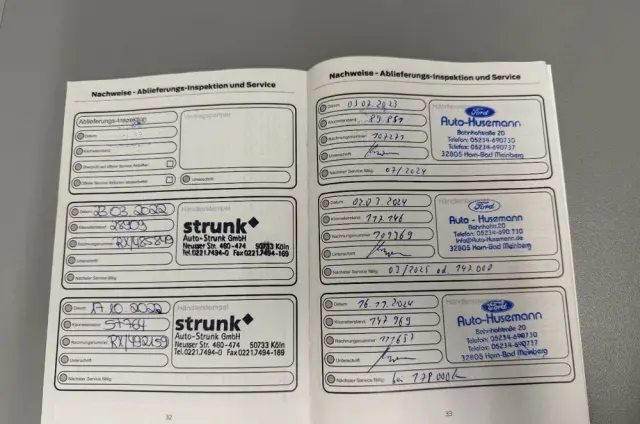 Nachweise - Ablieferungs-Inspektion und Service
Ablieferungs-Inspektion
Datum
Kilometerstand
Unterschrift
Datum 23.03.2022
Kilometerstand 28909
Rechnungsnummer
Unterschrift
Nächster Service fällig:
strunk
Auto-Strunk GmbH
Neusser Str. 460-474 50733 Köln
Tel.0221.7494-0 Fax0221.7494-169
Datum 17.10.2022
Kilometerstand 57764
Rechnungsnummer RX/492159
Unterschrift
Nächster Service fällig:
Händlerstempel
strunk
Auto-Strunk GmbH
Neusser Str. 460-474 50733 Köln
Tel.0221.7494-0 Fax 0221.7494-169
32
Nachweise - Ablieferungs-Inspektion und Service
Datum 03.07.2023
Kilometerstand
Rechnungsnummer
Unterschrift
Nächster Service fällig: 07/2024
Ford
Auto-Husemann
Bahnhofstraße 20
Telefon: 05234-690730
Telefax: 05234-690737
32805 Horn-Bad Meinberg
Datum
Kilometerstand 117 146
Rechnungsnummer
Unterschrift
Nächster Service fällig: 07/2025 od 147.000
Ford
Auto - Husemann
Bahnhofstr.20
Telefon: 05234-690 730
Info@Auto-Husemann.de
32805 Horn-Bad Meinberg
Datum 16.11.2024
Kilometerstand 147 969
Rechnungsnummer
Unterschrift
Nächster Service fällig: bei 178.000
Ford
Auto-Husemann
Bahnhofstraße 20
Telefon: 05234-690730
Telefax: 05234-690737
32805 Horn-Bad Meinberg
33